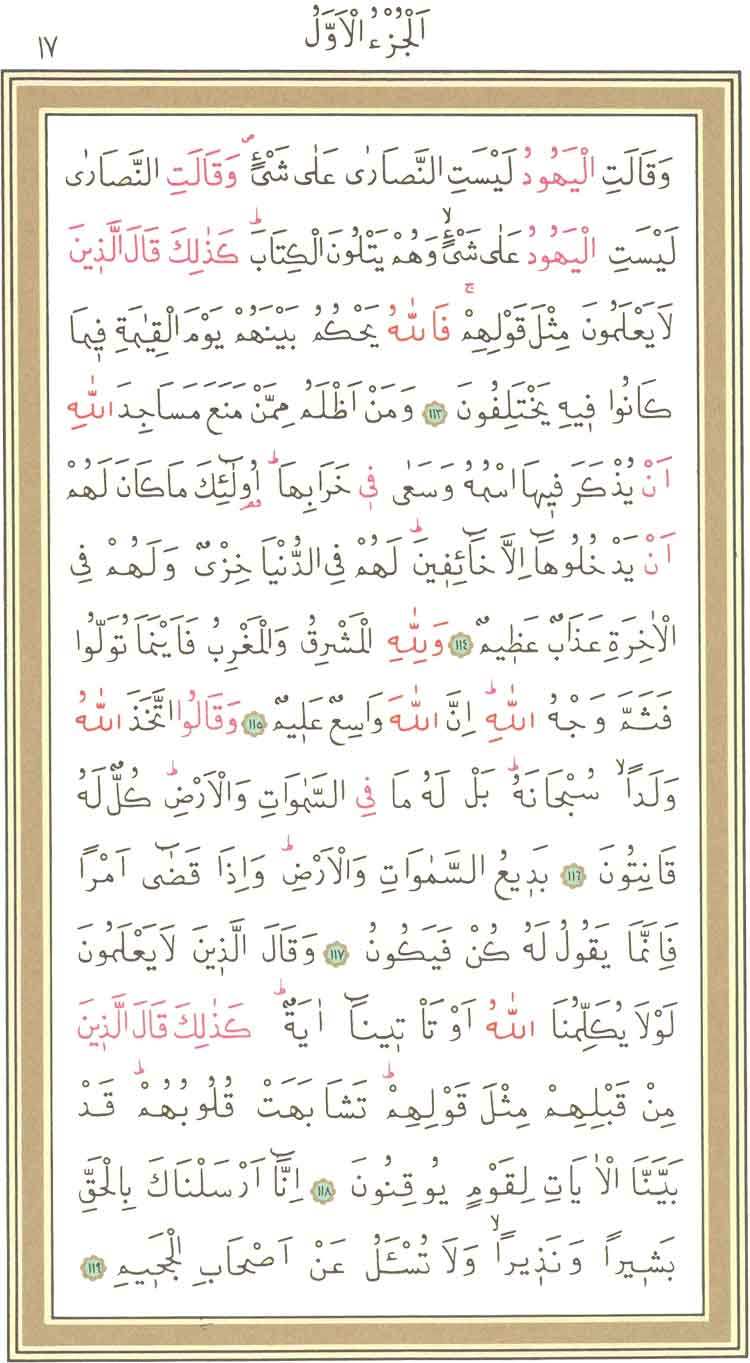 اَلْجُزْءُ الْاَوَّلُ
١٧
وَقَالَتِ الْيَهُودُ لَيْسَتِ النَّصَارٰى عَلٰى شَيْءٍۖ وَقَالَتِ النَّصَارٰى
لَيْسَتِ الْيَهُودُ عَلٰى شَيْءٍۙ وَهُمْ يَتْلُونَ الْكِتَابَۜ كَذٰلِكَ قَالَ الَّذ۪ينَ
لَا يَعْلَمُونَ مِثْلَ قَوْلِهِمْۚ فَاللّٰهُ يَحْكُمُ بَيْنَهُمْ يَوْمَ الْقِيٰمَةِ ف۪يمَا
كَانُوا ف۪يهِ يَخْتَلِفُونَ ١١٣ وَمَنْ اَظْلَمُ مِمَّنْ مَنَعَ مَسَاجِدَ اللّٰهِ
اَنْ يُذْكَرَ ف۪يهَا اسْمُهُ وَسَعٰى ف۪ي خَرَابِهَاۜ اُو۬لٰٓئِكَ مَا كَانَ لَهُمْ
اَنْ يَدْخُلُوهَٓا اِلَّا خَٓائِف۪ينَۜ لَهُمْ فِي الدُّنْيَا خِزْيٌ وَلَهُمْ فِي
الْاٰخِرَةِ عَذَابٌ عَظ۪يمٌ ١١٤ وَلِلّٰهِ الْمَشْرِقُ وَالْمَغْرِبُ فَاَيْنَمَا تُوَلُّوا
فَثَمَّ وَجْهُ اللّٰهِۜ اِنَّ اللّٰهَ وَاسِعٌ عَل۪يمٌ ١١٥ وَقَالُوا اتَّخَذَ اللّٰهُ
وَلَداًۙ سُبْحَانَهُۜ بَلْ لَهُ مَا فِي السَّمٰوَاتِ وَالْاَرْضِۜ كُلٌّ لَهُ
قَانِتُونَ ١١٦ بَد۪يعُ السَّمٰوَاتِ وَالْاَرْضِۜ وَاِذَا قَضٰٓى اَمْراً
فَاِنَّمَا يَقُولُ لَهُ كُنْ فَيَكُونُ ١١٧ وَقَالَ الَّذ۪ينَ لَا يَعْلَمُونَ
لَوْلَا يُكَلِّمُنَا اللّٰهُ اَوْ تَأْت۪ينَٓا اٰيَةٌۜ كَذٰلِكَ قَالَ الَّذ۪ينَ
مِنْ قَبْلِهِمْ مِثْلَ قَوْلِهِمْۜ تَشَابَهَتْ قُلُوبُهُمْۜ قَدْ
بَيَّنَّا الْاٰيَاتِ لِقَوْمٍ يُوقِنُونَ ١١٨ اِنَّٓا اَرْسَلْنَاكَ بِالْحَقِّ
بَش۪يراً وَنَذ۪يراًۙ وَلَا تُسْـَٔلُ عَنْ اَصْحَابِ الْجَح۪يمِ ١١٩